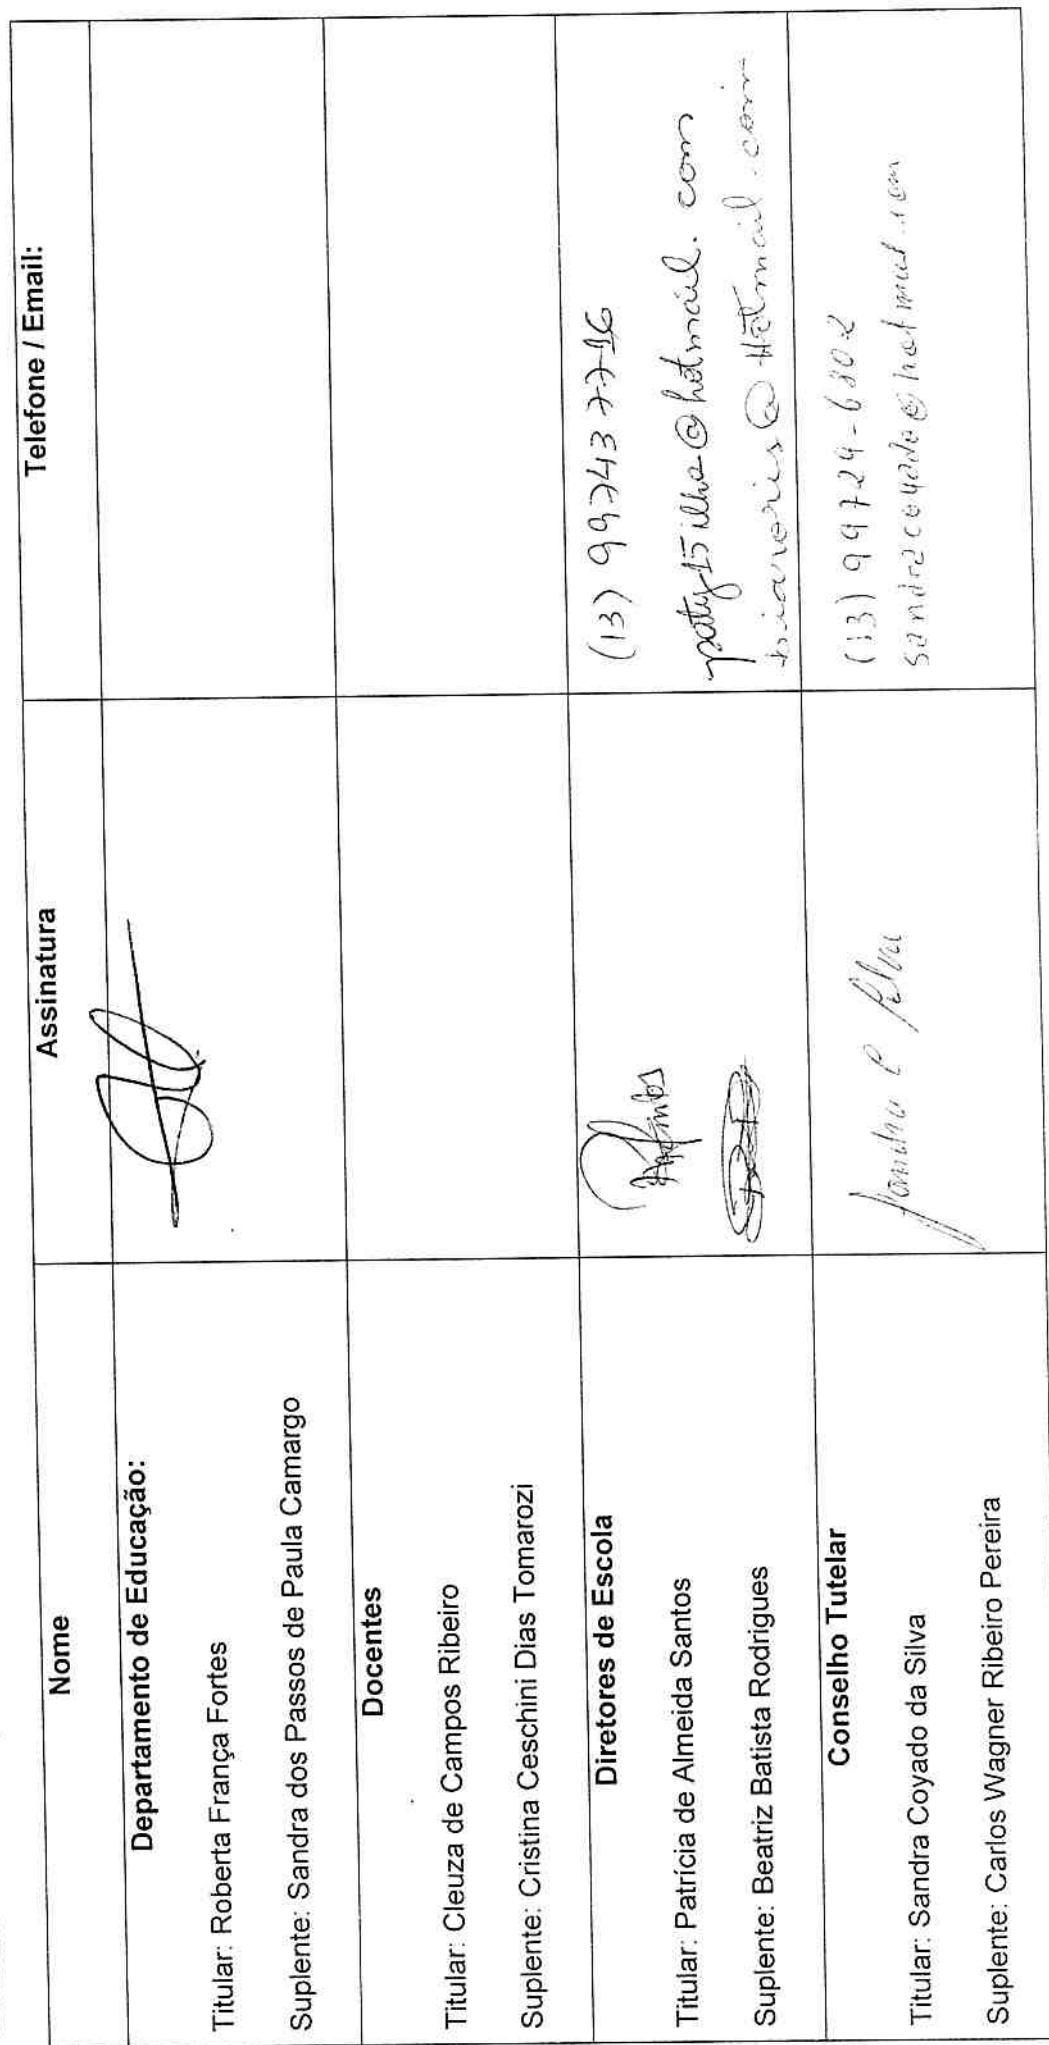 Nome
Assinatura
Telefone / Email:
Departamento de Educação:
Titular: Roberta França Fortes
Suplente: Sandra dos Passos de Paula Camargo
Docentes
Titular: Cleuza de Campos Ribeiro
Suplente: Cristina Ceschini Dias Tomarozi
Diretores de Escola
Titular: Patrícia de Almeida Santos
Suplente: Beatriz Batista Rodrigues
(13) 997437716
paty15ilha@hotmail.com
@Hotmail.com
Conselho Tutelar
Titular: Sandra Coyado da Silva
Suplente: Carlos Wagner Ribeiro Pereira
Sandra C Silva
(13) 99724-6802
sandracoyado@hotmail.com